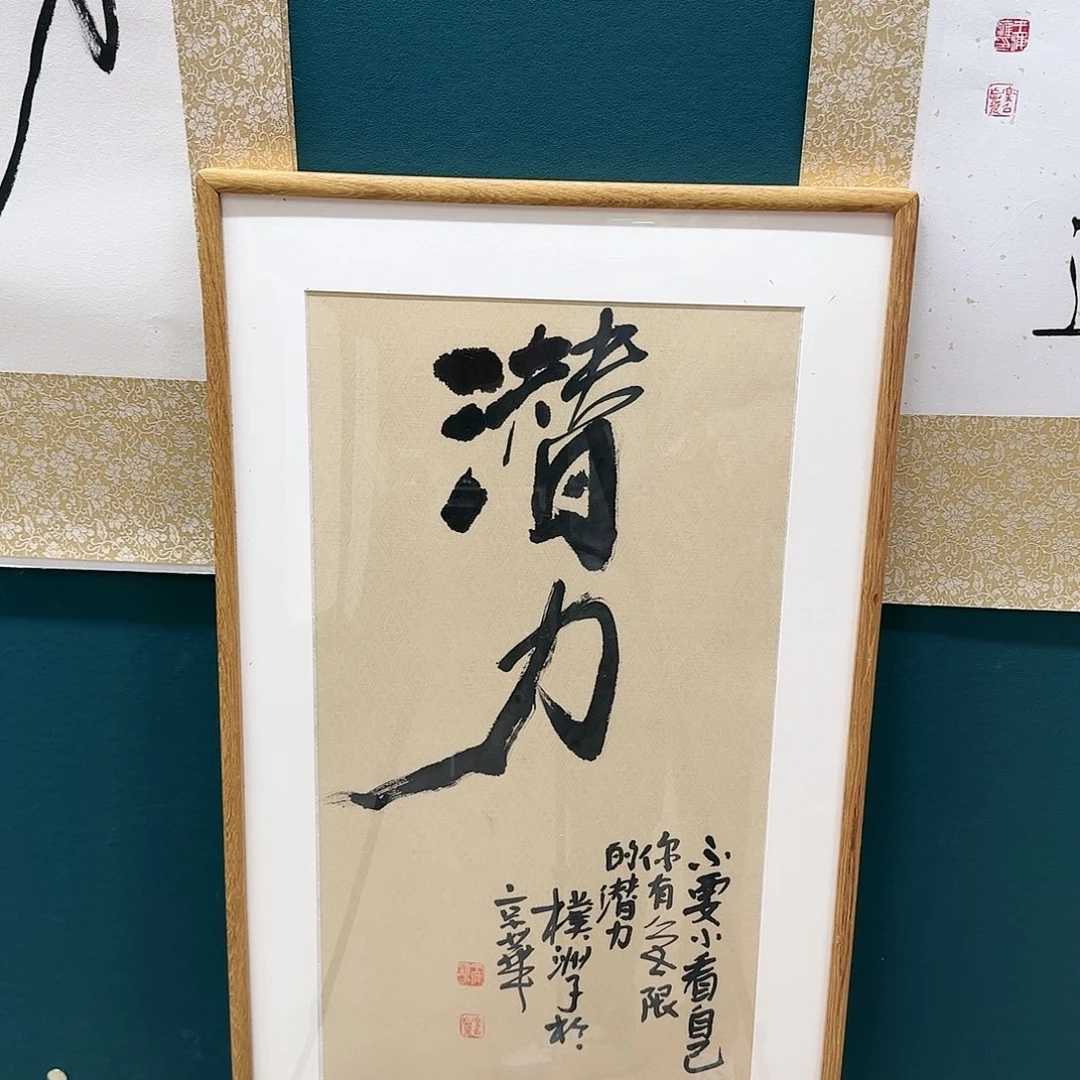 潜力
不要小看自己
你有无限
的潜力
樸洲子於
京華